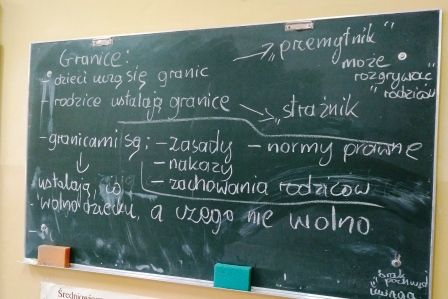 Granice:
- dzieci uczą się granic
- rodzice ustalają granice
→ „przemytnik"
może
rozgrywać
rodziców
→ „strażnik"
- granicami są: - zasady - normy prawne
- nakazy
- zachowania rodziców
ustalają, co
wolno dziecku, a czego nie wolno
brak
pochwał
uwaga